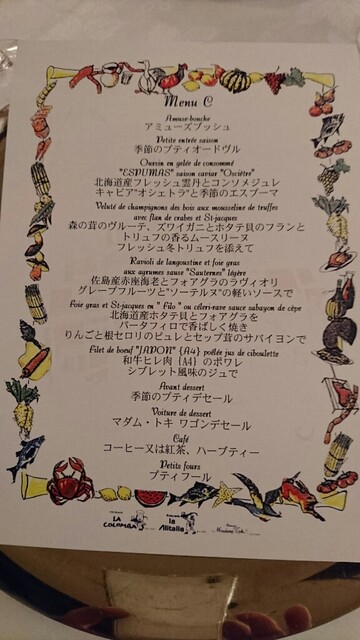 Menu C
Amuse-bouche
アミューズブッシュ
Petite entrée saison
季節のプティオードヴル
Oursin en gelée de consommé
"ESPUMAS" saison caviar "Osciètre"
北海道産フレッシュ雲丹とコンソメジュレ
キャビア"オシェトラ"と季節のエスプーマ
Velouté de champignons des bois aux mousseline de truffes
avec flan de crabes et St-jacques
森の茸のヴルーテ、ズワイガニとホタテ貝のフランと
トリュフの香るムースリーヌ
フレッシュ冬トリュフを添えて
Ravioli de langoustine et foie gras
aux agrumes sauce "Sauternes" légère
佐島産赤座海老とフォアグラのラヴィオリ
グレープフルーツと"ソーテルヌ"の軽いソースで
Foie gras et St-jacques en " Filo " ou céleri-rave sauce sabayon de cèpe
北海道産ホタテ貝とフォアグラを
パータフィロで香ばしく焼き
りんごと根セロリのピュレとセップ茸のサバイヨンで
Filet de boeuf "JAPON" {A4} poêlée jus de ciboulette
和牛ヒレ肉 {A4} のポワレ
シブレット風味のジュで
Avant dessert
季節のプティデセール
Voiture de dessert
マダム・トキ ワゴンデセール
Café
コーヒー又は紅茶、ハーブティー
Petits fours
プティフール
LA COLOMBA
la Alitalia